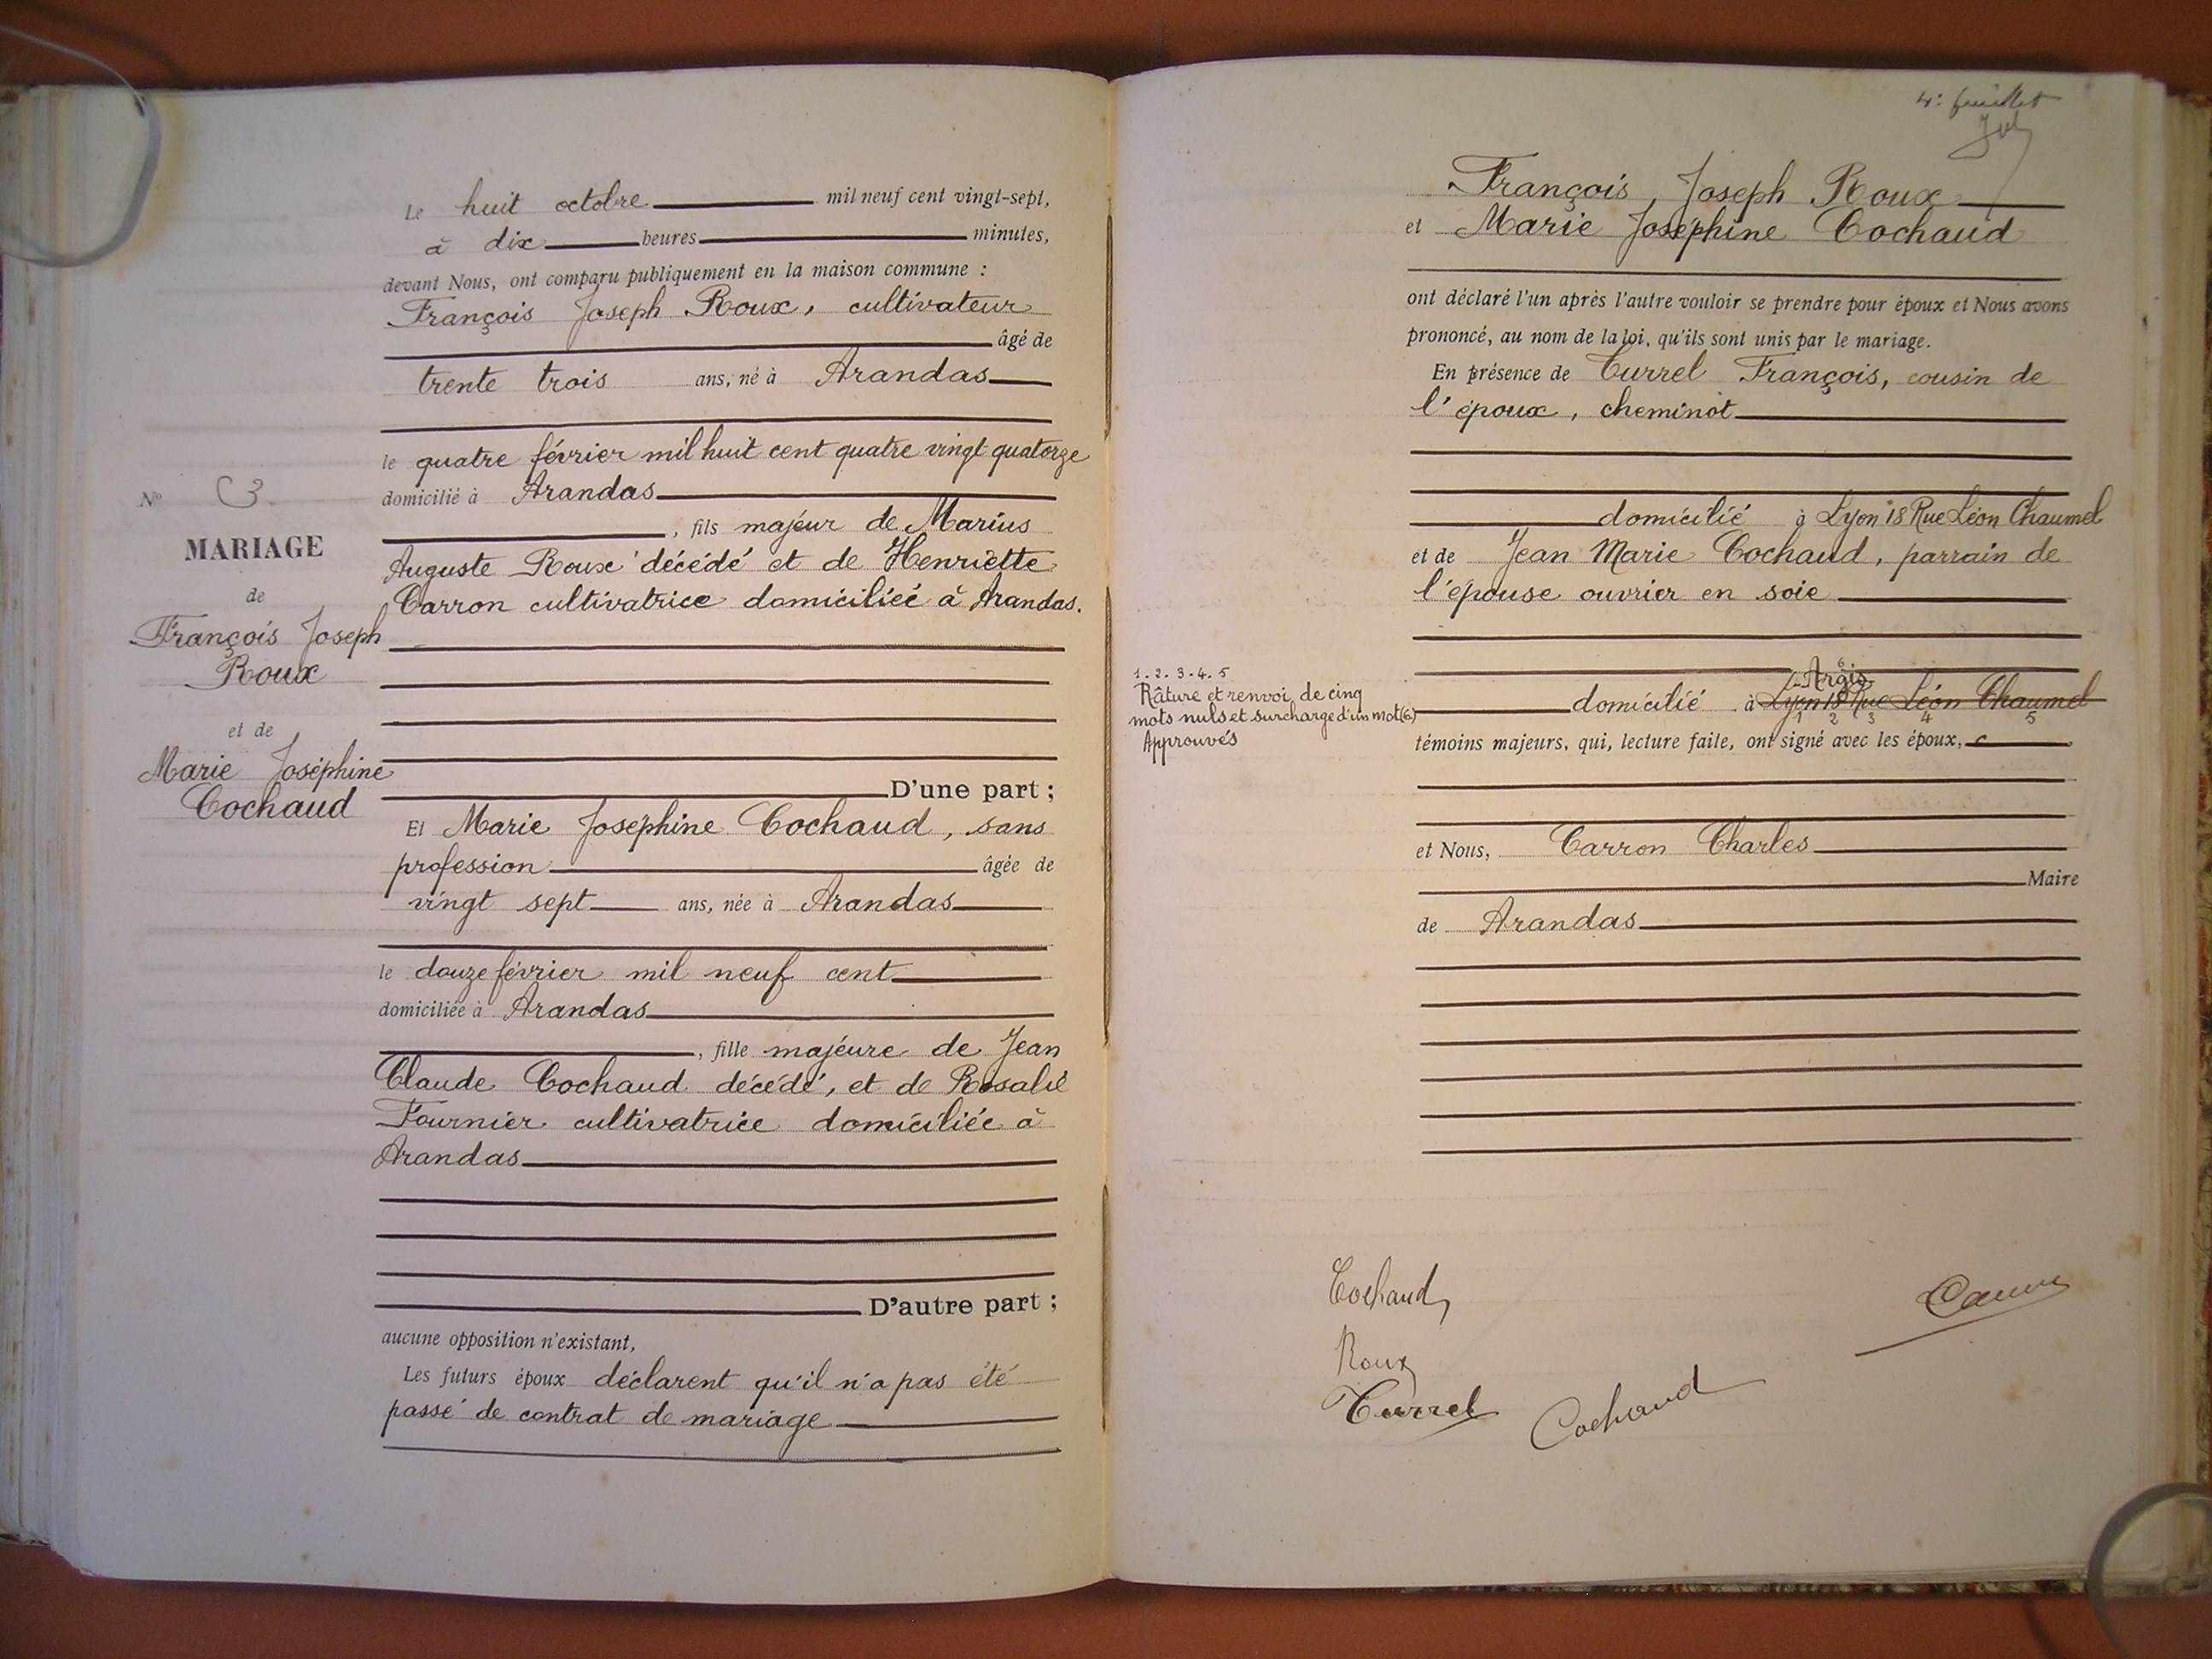 Le huit octobre mil neuf cent vingt-sept,
à dix heures minutes,
devant Nous, ont comparu publiquement en la maison commune :
François Joseph Roux, cultivateur
âgé de
trente trois ans, né à Arandas
le quatre février mil huit cent quatre vingt quatorze
domicilié à Arandas
, fils majeur de Marius
Auguste Roux décédé et de Henriette
Carron cultivatrice domiciliée à Arandas.
D'une part ;
Et Marie Joséphine Cochaud, sans
profession âgée de
vingt sept ans, née à Arandas
le douze février mil neuf cent
domiciliée à Arandas
, fille majeure de Jean
Claude Cochaud décédé, et de Rosalie
Fournier cultivatrice domiciliée à
Arandas
D'autre part ;
aucune opposition n'existant,
Les futurs époux déclarent qu'il n'a pas été
passé de contrat de mariage
No 3.
MARIAGE
de
François Joseph
Roux
et de
Marie Joséphine
Cochaud
4e feuillet
François Joseph Roux
et Marie Joséphine Cochaud
ont déclaré l'un après l'autre vouloir se prendre pour époux et Nous avons
prononcé, au nom de la loi, qu'ils sont unis par le mariage.
En présence de Turrel François, cousin de
l'époux, cheminot
domicilié à Lyon 18 Rue Léon Chaumel
et de Jean Marie Cochaud, parrain de
l'épouse ouvrier en soie
6
Argis
domicilié à Lyon 18 Rue Léon Chaumel
1 2 3 4 5
témoins majeurs, qui, lecture faite, ont signé avec les époux,
et Nous, Carron Charles
Maire
de Arandas
1.2.3.4.5
Râture et renvoi de cinq
mots nuls et surcharge d'un mot (6)
Approuvés
Cochaud
Roux
Turrel
Cochaud